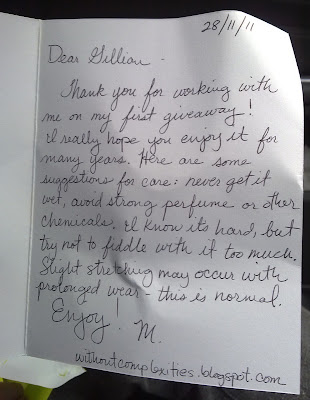 28/11/11
Dear Gillian -
Thank you for working with
me on my first giveaway!
I really hope you enjoy it for
many years. Here are some
suggestions for care: never get it
wet, avoid strong perfume or other
chemicals. I know its hard, but
try not to fiddle with it too much.
Slight stretching may occur with
prolonged wear - this is normal.
Enjoy! M.
withoutcomplexities.blogspot.com